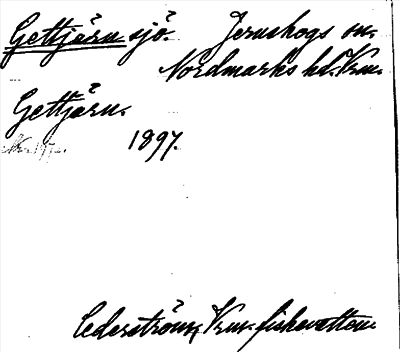 Gettjärn sjö. Jernskogs sn.
Nordmarks hd. Vrm.
Gettjärn.
1897.
Cederström, Vrm. fiskevatten